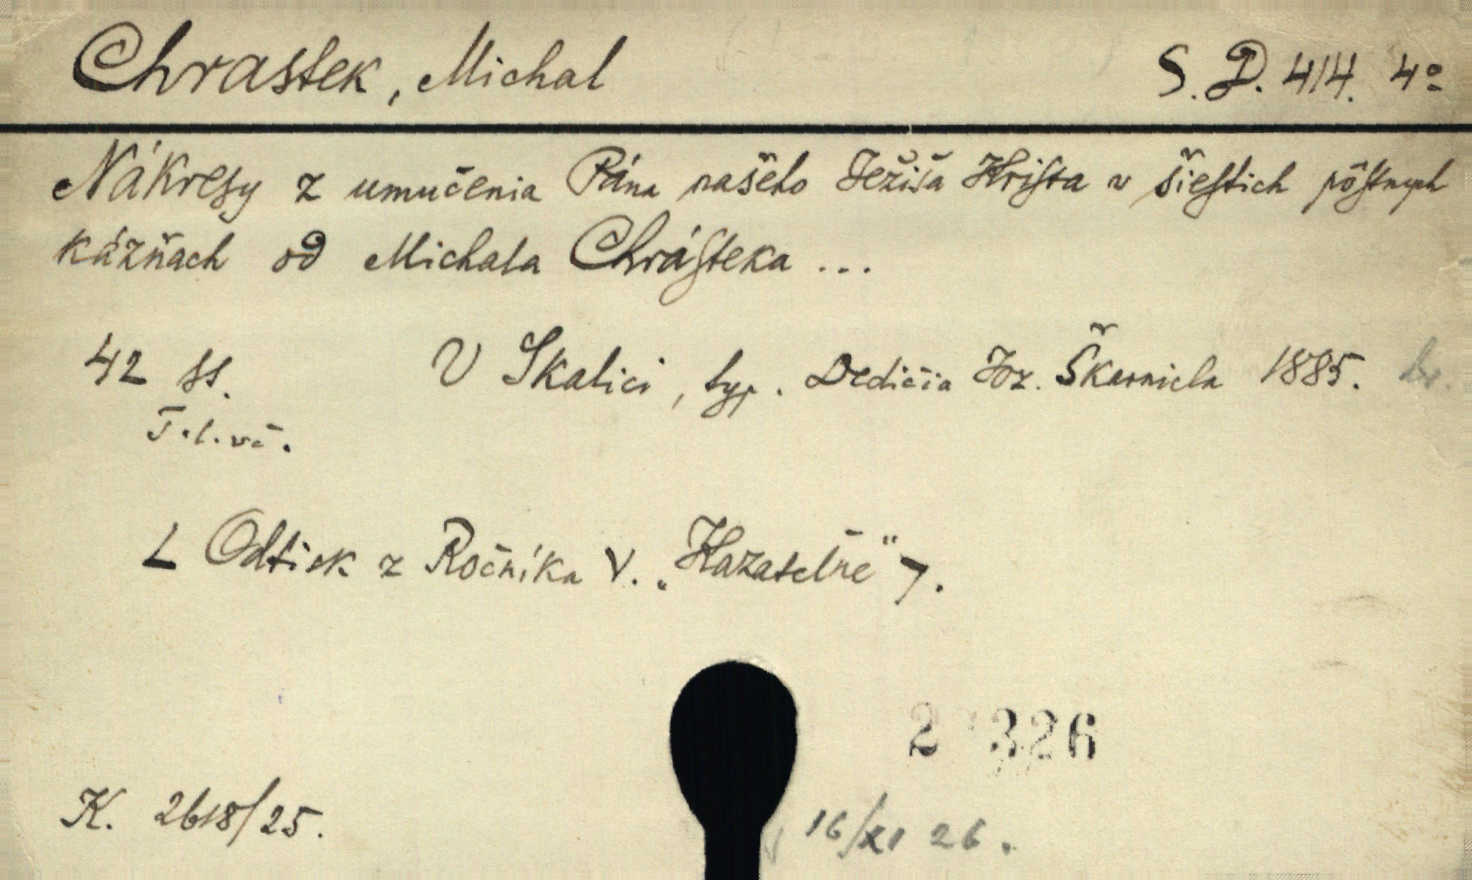 Chrastek, Michal S. D. 414. 4º
Nákresy z umučenia Pána našeho Ježiša Krista v šiestich pôstnych
kázňach od Michala Chrásteka ...
42 ss. V Skalici, typ. Dedičia Joz. Škarnicla 1885. br.
T. l. vč.
[Odtisk z Ročníka V. „Kazatelne"].
2 326
K. 2618/25.
16/XI 26.